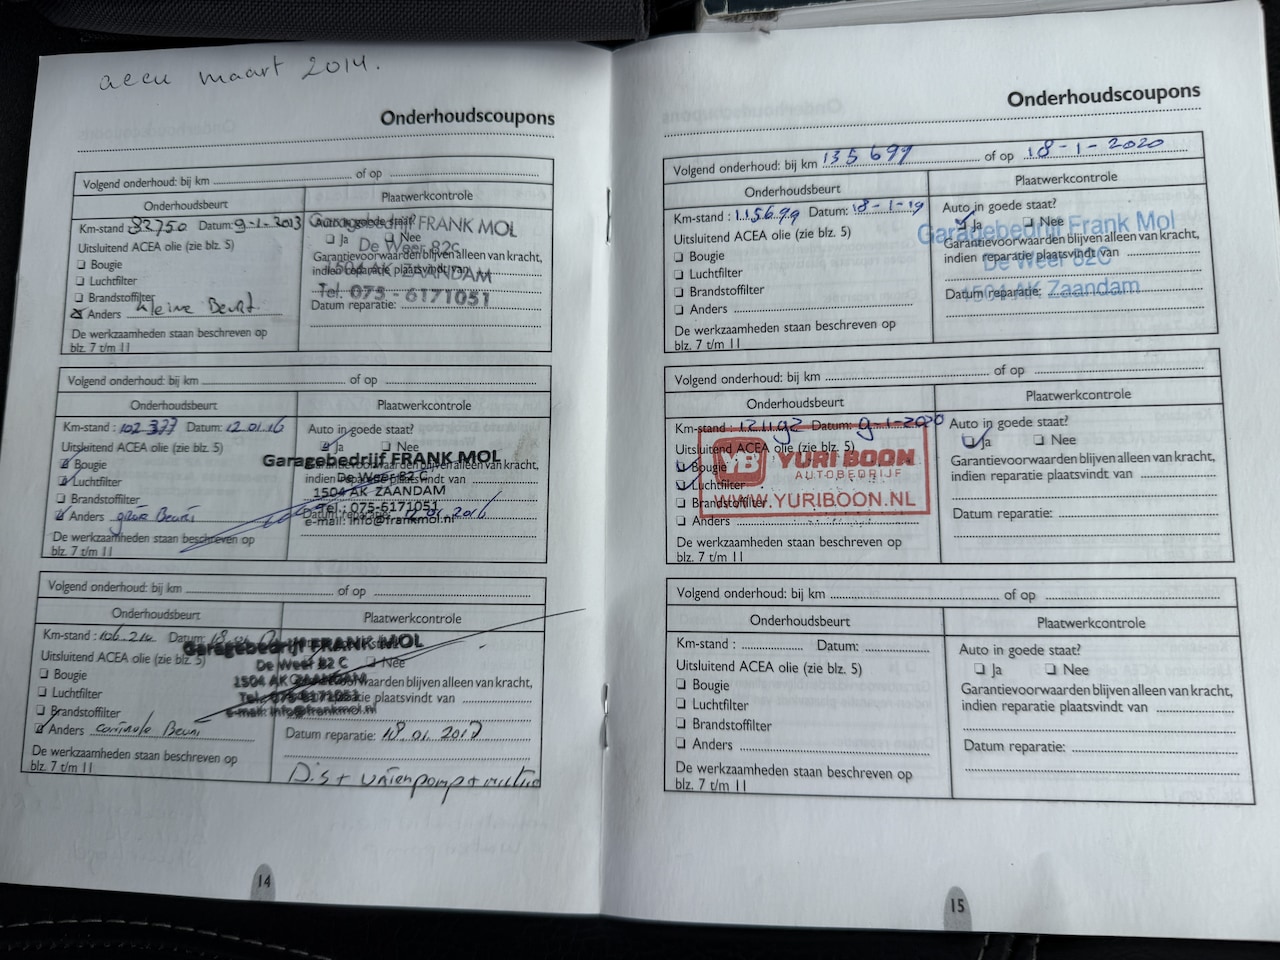 accu maart 2014.
Onderhoudscoupons
Volgend onderhoud: bij km of op
Onderhoudsbeurt
Plaatwerkcontrole
Km-stand : 82750 Datum: 9-1-2013
Auto in goede staat?
Uitsluitend ACEA olie (zie blz. 5)
Ja Nee
Bougie
Garantievoorwaarden blijven alleen van kracht,
Luchtfilter
indien reparatie plaatsvindt van
Brandstoffilter
Datum reparatie:
Anders kleine Beurt.
De werkzaamheden staan beschreven op
blz. 7 t/m 11
Garagebedrijf FRANK MOL
De Weer 82c
1504 AK ZAANDAM
Tel. 075 - 6171051
Volgend onderhoud: bij km of op
Onderhoudsbeurt
Plaatwerkcontrole
Km-stand : 102 377 Datum: 12.01.16
Auto in goede staat?
Uitsluitend ACEA olie (zie blz. 5)
Ja Nee
Bougie
Garantievoorwaarden blijven alleen van kracht,
Luchtfilter
indien reparatie plaatsvindt van
Brandstoffilter
Datum reparatie: 12.01.2016
Anders grote Beurt
De werkzaamheden staan beschreven op
blz. 7 t/m 11
Garagebedrijf FRANK MOL
De Weer 82 C
1504 AK ZAANDAM
Tel.: 075-6171051
e-mail: info@frankmol.nl
Volgend onderhoud: bij km of op
Onderhoudsbeurt
Plaatwerkcontrole
Km-stand : 106 210 Datum: 18.01
Uitsluitend ACEA olie (zie blz. 5)
Nee
Bougie
voorwaarden blijven alleen van kracht,
Luchtfilter
reparatie plaatsvindt van
Brandstoffilter
Anders controle Beurt
Datum reparatie: 18.01.2017
De werkzaamheden staan beschreven op
blz. 7 t/m 11
Garagebedrijf FRANK MOL
De Weer 82 C
1504 AK ZAANDAM
Tel.: 075-6171051
e-mail: info@frankmol.nl
Dis +
14
Onderhoudscoupons
Volgend onderhoud: bij km 135 699 of op 18-1-2020
Onderhoudsbeurt
Plaatwerkcontrole
Km-stand : 115699 Datum: 18-1-19
Auto in goede staat?
Uitsluitend ACEA olie (zie blz. 5)
Ja Nee
Bougie
Garantievoorwaarden blijven alleen van kracht,
Luchtfilter
indien reparatie plaatsvindt van
Brandstoffilter
Datum reparatie:
Anders
De werkzaamheden staan beschreven op
blz. 7 t/m 11
Garagebedrijf Frank Mol
De Weer 82C
1504 AK Zaandam
Volgend onderhoud: bij km of op
Onderhoudsbeurt
Plaatwerkcontrole
Km-stand : 121192 Datum: 9-1-2020
Auto in goede staat?
Uitsluitend ACEA olie (zie blz. 5)
Ja Nee
Bougie
Garantievoorwaarden blijven alleen van kracht,
Luchtfilter
indien reparatie plaatsvindt van
Brandstoffilter
Datum reparatie:
Anders
De werkzaamheden staan beschreven op
blz. 7 t/m 11
YB YURI BOON
AUTOBEDRIJF
WWW.YURIBOON.NL
Volgend onderhoud: bij km of op
Onderhoudsbeurt
Plaatwerkcontrole
Km-stand : Datum:
Auto in goede staat?
Uitsluitend ACEA olie (zie blz. 5)
Ja Nee
Bougie
Garantievoorwaarden blijven alleen van kracht,
Luchtfilter
indien reparatie plaatsvindt van
Brandstoffilter
Datum reparatie:
Anders
De werkzaamheden staan beschreven op
blz. 7 t/m 11
15